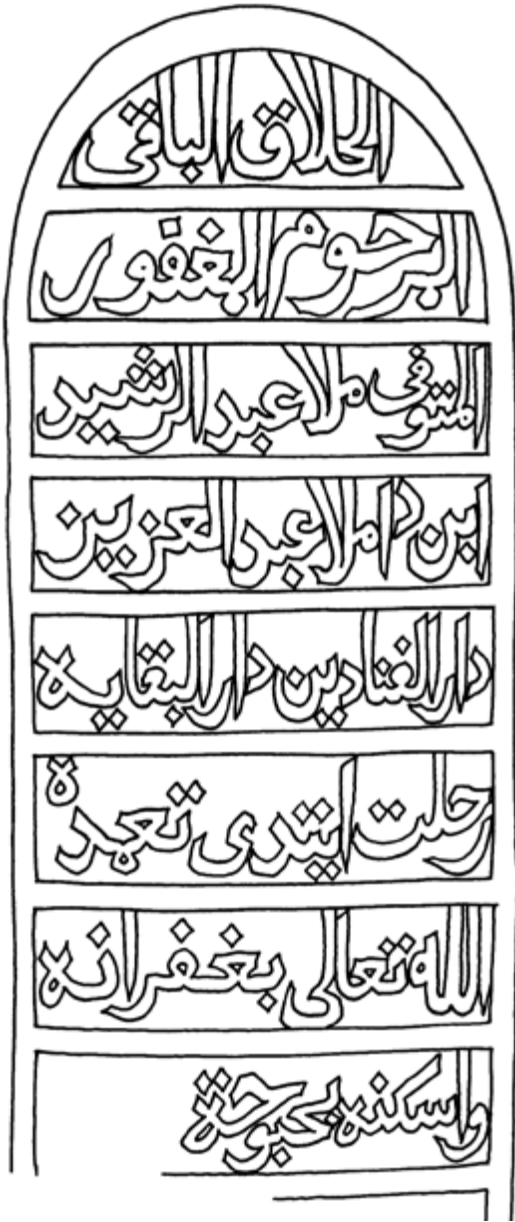 الخلاق الباقى
المرحوم المغفور
المتوفى ملا عبد الرشيد
ابن داملا عبد العزيز
دار الفنادين دار البقايه
رحلت ايتدى تعمدة
الله تعالى بغفرانه
واسكنه بحبوحة